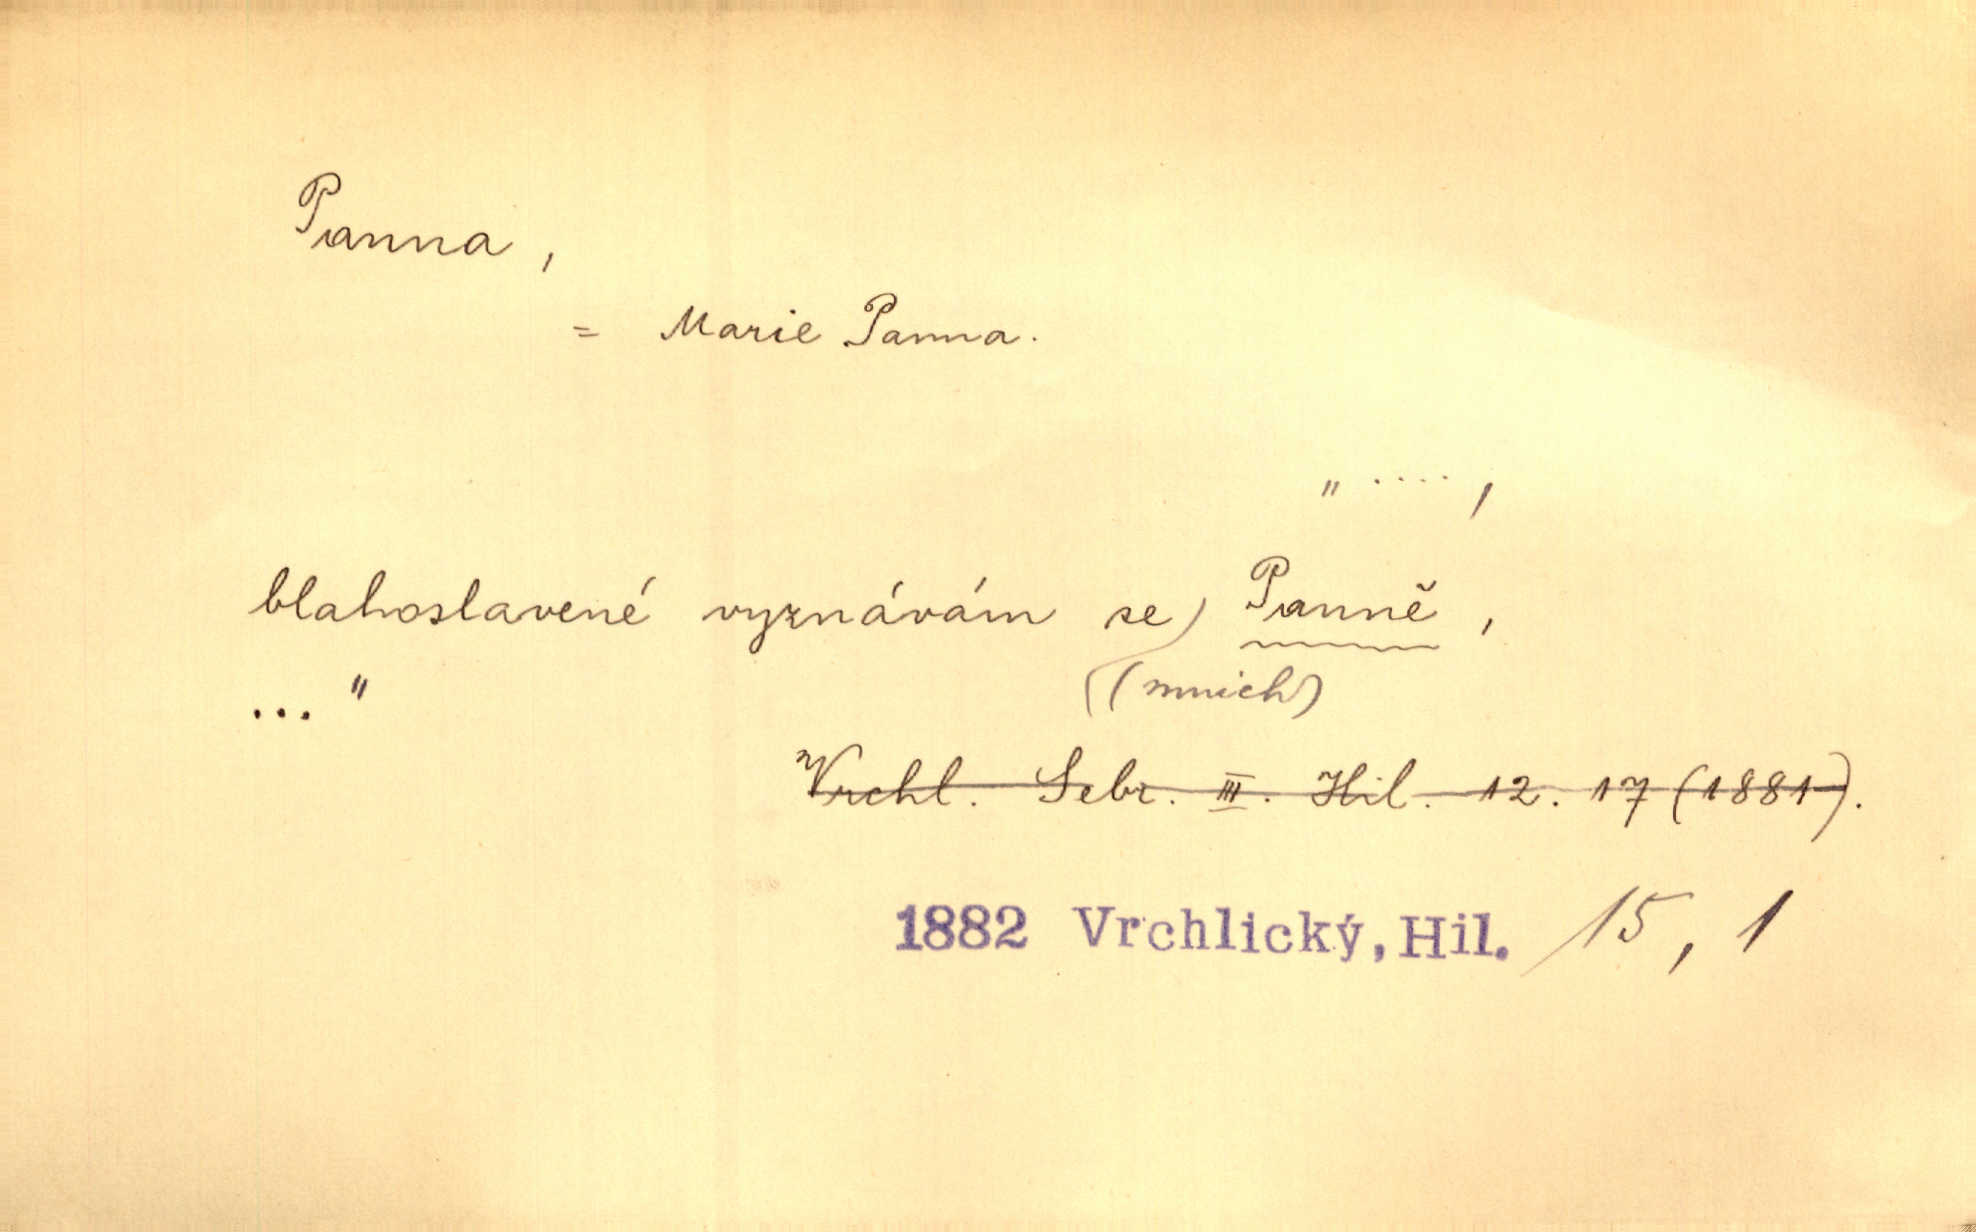 Panna,
= Marie Panna.
" ....,
blahoslavené vyznávám se Panně,
(mnich)
... "
Vrchl. Sebr. III. Hil. 12. 17 (1881).
1882 Vrchlický, Hil. 15, 1